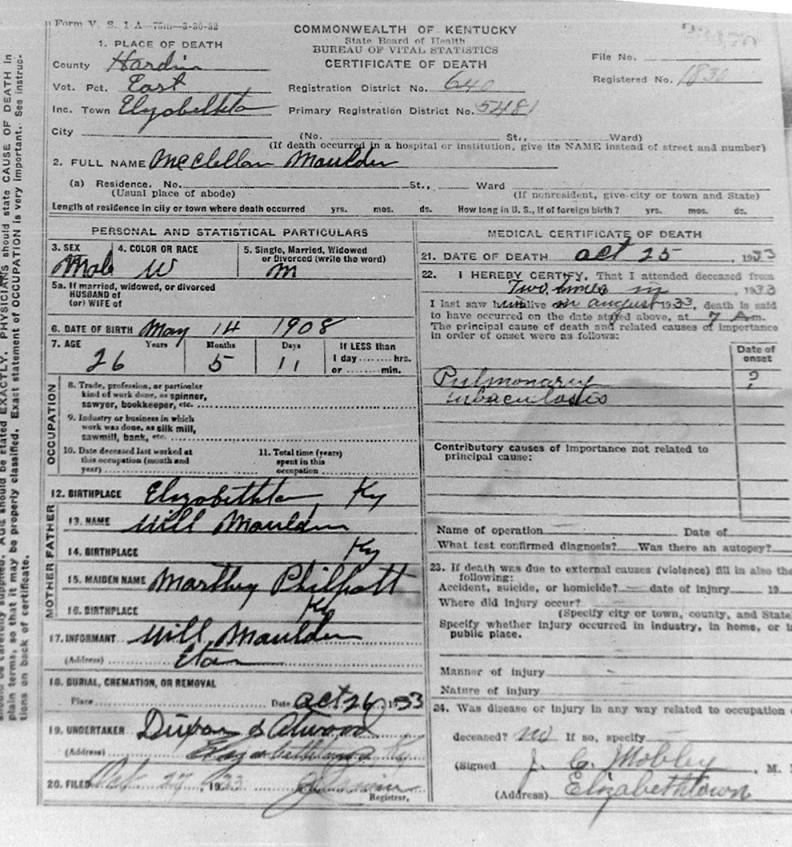 Form V. S. 1 A—75m—3-30-32
COMMONWEALTH OF KENTUCKY
State Board of Health
BUREAU OF VITAL STATISTICS
CERTIFICATE OF DEATH
File No.
Registered No. 1830
1. PLACE OF DEATH
County Hardin
Vot. Pct. East
Inc. Town
City
Registration District No. 640
Primary Registration District No. 5481
(No. St., Ward)
(If death occurred in a hospital or institution, give its NAME instead of street and number)
2. FULL NAME McClellan Mauldin
(a) Residence. No. St., Ward
(Usual place of abode) (If nonresident, give city or town and State)
Length of residence in city or town where death occurred yrs. mos. ds. How long in U. S., if of foreign birth? yrs. mos. ds.
PERSONAL AND STATISTICAL PARTICULARS
3. SEX 4. COLOR OR RACE 5. Single, Married, Widowed
or Divorced (write the word)
Male W M
5a. If married, widowed, or divorced
HUSBAND of
(or) WIFE of
6. DATE OF BIRTH May 14 1908
7. AGE Years Months Days If LESS than
1 day ........ hrs.
or ........ min.
26 5 11
OCCUPATION
8. Trade, profession, or particular
kind of work done, as spinner,
sawyer, bookkeeper, etc.
9. Industry or business in which
work was done, as silk mill,
sawmill, bank, etc.
10. Date deceased last worked at
this occupation (month and
year)
11. Total time (years)
spent in this
occupation
12. BIRTHPLACE Ky
FATHER
13. NAME Will Mauldin
14. BIRTHPLACE Ky
MOTHER
15. MAIDEN NAME Marthey Philpott
16. BIRTHPLACE Ky
17. INFORMANT Will Mauldin
(Address) Etan
18. BURIAL, CREMATION, OR REMOVAL
Place Date Oct 26, 1933
19. UNDERTAKER Dixon & Atwood
(Address) Elizabethtown Ky
20. FILED Oct 27, 1933
Registrar.
MEDICAL CERTIFICATE OF DEATH
21. DATE OF DEATH Oct 25, 1933
22. I HEREBY CERTIFY, That I attended deceased from
Two times in, 1933
I last saw him alive on August 1933, death is said
to have occurred on the date stated above, at 7 A m.
The principal cause of death and related causes of importance
in order of onset were as follows:
Date of
onset
Pulmonary ?
tubaculosis
Contributory causes of importance not related to
principal cause:
Name of operation Date of
What test confirmed diagnosis? Was there an autopsy?
23. If death was due to external causes (violence) fill in also the
following:
Accident, suicide, or homicide? date of injury 19
Where did injury occur?
(Specify city or town, county, and State
Specify whether injury occurred in industry, in home, or in
public place.
Manner of injury
Nature of injury
24. Was disease or injury in any way related to occupation of
deceased? no If so, specify
(Signed J. C. Mobley, M.
(Address) Elizabethtown
plied. AGE should be stated EXACTLY. PHYSICIANS should state CAUSE OF DEATH in
plain terms, so that it may be properly classified. Exact statement of OCCUPATION is very important. See instruc-
tions on back of certificate.